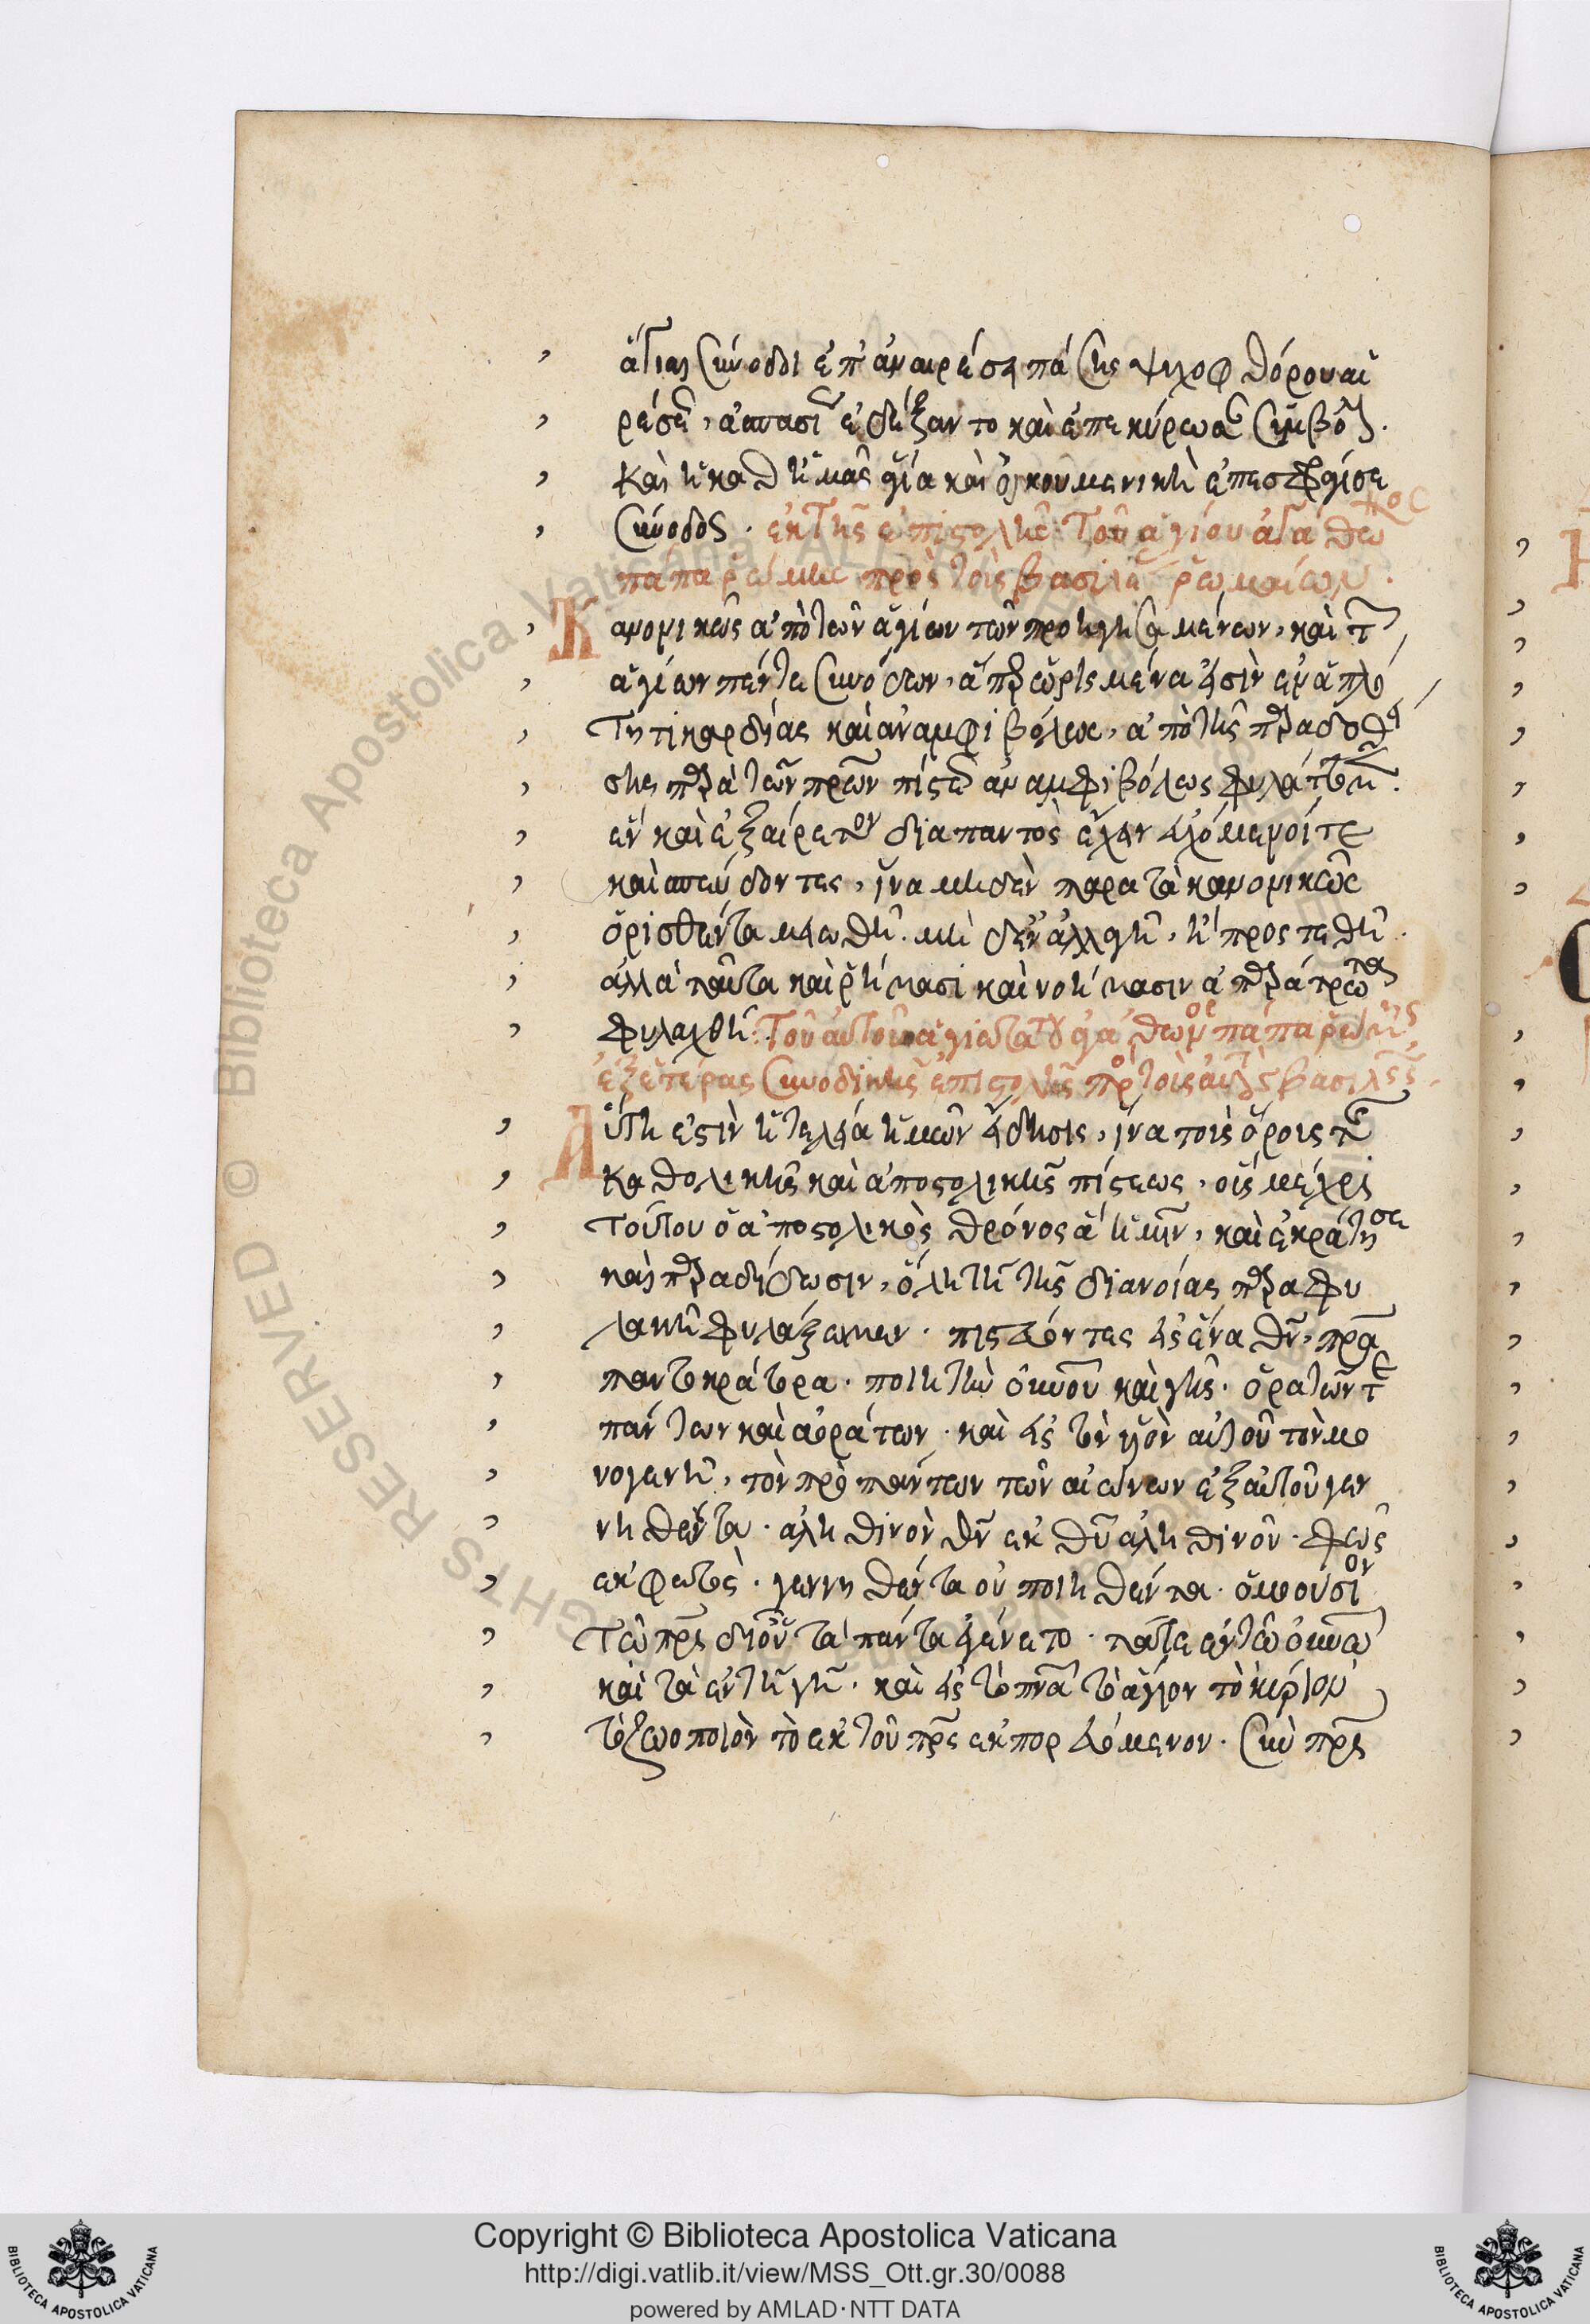 ἅγιαι σύνοδοι ἐπ' ἀναιρέσει πάσης ψυχοφθόρου αἱ
ρέσεως, ἀσπασίως ἐδέξαντο καὶ ἐπεκύρωσαν σύμβολον.
καὶ ἡ καθ' ἡμᾶς ἁγία καὶ οἰκουμενικὴ ἐπεσφράγισε
σύνοδος. ἐκ τῆς ἐπιστολῆς τοῦ ἁγίου ἀγάθωνος
πάπα ῥώμης πρὸς τοὺς βασιλεῖς ῥωμαίων.
Κανονικῶς ἀπὸ τῶν ἁγίων τῶν προηγησαμένων, καὶ τῶν
ἁγίων πέντε συνόδων, ἅπερ ὡρισμένα εἰσὶν ἐν ἁπλό
τητι καρδίας καὶ ἀναμφιβόλως, ἀπὸ τῆς παραδοθεί
σης παρὰ τῶν πατέρων πίστεως ἀναμφιβόλως φυλάττομεν.
ἓν καὶ ἐξαίρετον διαπαντὸς ἔχειν εὐχόμενοί τε
καὶ σπεύδοντες, ἵνα μηδὲν παρὰ τὰ κανονικῶς
ὁρισθέντα μειωθῇ. μηδὲν ἀλλαγῇ, ἢ προστεθῇ.
ἀλλὰ ταῦτα καὶ ῥήμασι καὶ νοήμασιν ἀπαράτρωτα
φυλαχθῇ. Τοῦ αὐτοῦ ἁγιωτάτου ἀγάθωνος πάπα ῥώμης
ἐξ ἑτέρας συνοδικῆς ἐπιστολῆς πρὸς τοὺς αὐτοὺς βασιλεῖς.
Αὕτη ἐστὶν ἡ τελεία ἡμῶν εἴδησις, ἵνα τοὺς ὅρους τῆς
καθολικῆς καὶ ἀποστολικῆς πίστεως, οὓς μέχρι
τούτου ὁ ἀποστολικὸς θρόνος ἅμ' ἡμῖν, καὶ ἐκράτησε
καὶ παραδίδωσιν, ὅλῃ τῇ τῆς διανοίας παραφυ
λακῇ φυλάξωμεν. πιστεύοντες εἰς ἕνα θν, πρα
παντοκράτορα. ποιητὴν οὐνοῦ καὶ γῆς. ὁρατῶν τε
πάντων καὶ ἀοράτων. καὶ εἰς τὸν υἱὸν αὐτοῦ τὸν μο
νογενῆ, τὸν πρὸ πάντων τῶν αἰώνων ἐξ αὐτοῦ γεν
νηθέντα. ἀληθινὸν θν ἐκ θυ ἀληθινοῦ. φῶς
ἐκ φωτὸς. γεννηθέντα οὐ ποιηθέντα. ὁμοούσιον
τῷ πρς δι' οὗ τὰ πάντα ἐγένετο. τά τε ἐν τῷ οὐνῷ
καὶ τὰ ἐν τῇ γῇ. καὶ εἰς τὸ πνα τὸ ἅγιον τὸ κύριον
τὸ ζωοποιὸν τὸ ἐκ τοῦ πρς ἐκπορευόμενον. σὺν πρς
Copyright © Biblioteca Apostolica Vaticana
http://digi.vatlib.it/view/MSS_Ott.gr.30/0088
powered by AMLAD·NTT DATA